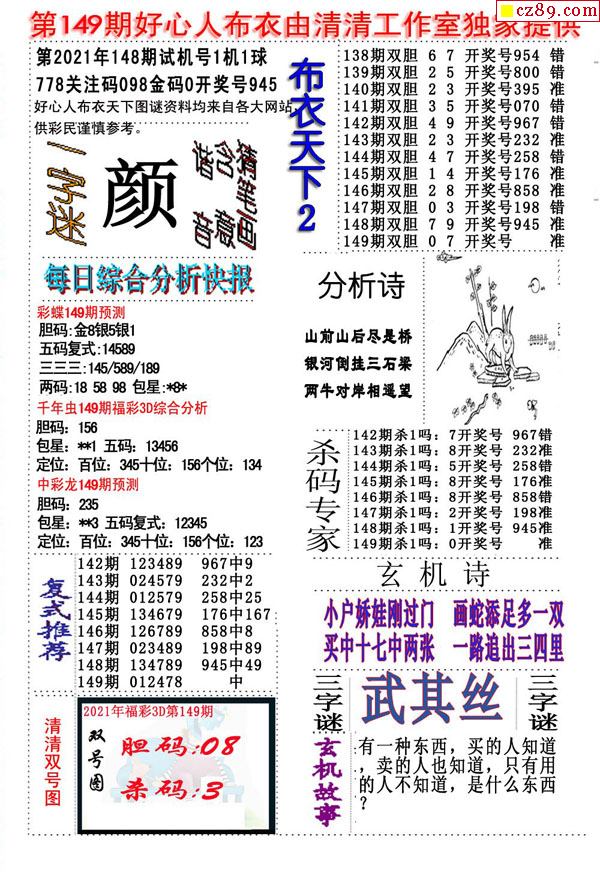 cz89.com
第149期好心人布衣由清清工作室独家提供
第2021年148期试机号1机1球
778关注码098金码0开奖号945
好心人布衣天下图谜资料均来自各大网站,
供彩民谨慎参考。
一字迷
颜
谐音
含意
猜笔画
布衣天下2
138期双胆 6 7 开奖号954 错
139期双胆 2 5 开奖号800 错
140期双胆 2 3 开奖号395 准
141期双胆 3 5 开奖号070 错
142期双胆 4 9 开奖号967 错
143期双胆 2 3 开奖号232 准
144期双胆 4 7 开奖号258 错
145期双胆 1 4 开奖号176 准
146期双胆 2 8 开奖号858 准
147期双胆 0 3 开奖号198 错
148期双胆 7 9 开奖号945 准
149期双胆 0 7 开奖号 准
每日综合分析快报
彩蝶149期预测
胆码:金8银5银1
五码复式:14589
三三三:145/589/189
两码:18 58 98 包星:*8*
千年虫149期福彩3D综合分析
胆码: 156
包星: **1 五码: 13456
定位: 百位: 345十位: 156个位: 134
中彩龙149期预测
胆码: 235
包星: **3 五码复式: 12345
定位: 百位: 345十位: 156个位: 123
分析诗
山前山后尽是桥
银河倒挂三石梁
两牛对岸相遥望
杀码专家
142期杀1吗: 7开奖号 967错
143期杀1吗: 8开奖号 232准
144期杀1吗: 5开奖号 258错
145期杀1吗: 8开奖号 176准
146期杀1吗: 8开奖号 858错
147期杀1吗: 2开奖号 198准
148期杀1吗: 1开奖号 945准
149期杀1吗: 0开奖号 准
复式推荐
142期 123489 967中9
143期 024579 232中2
144期 012579 258中25
145期 134679 176中167
146期 126789 858中8
147期 023489 198中89
148期 134789 945中49
149期 012478 中
玄机诗
小户娇娃刚过门 画蛇添足多一双
买中十七中两张 一路追出三四里
三字谜
武其丝
三字谜
清清双号图
2021年福彩3D第149期
双号图
胆码:08
杀码:3
玄机故事
有一种东西，买的人知道
，卖的人也知道，只有用
的人不知道，是什么东西
？